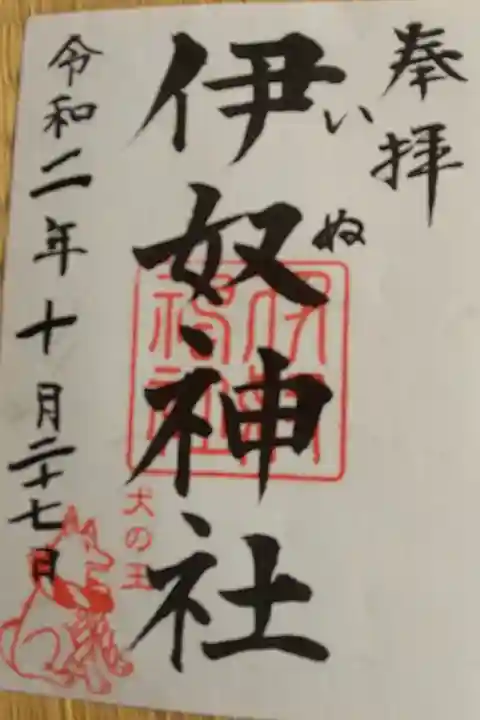 奉拝
伊奴神社
いぬ
令和二年十月二十七日
犬の王